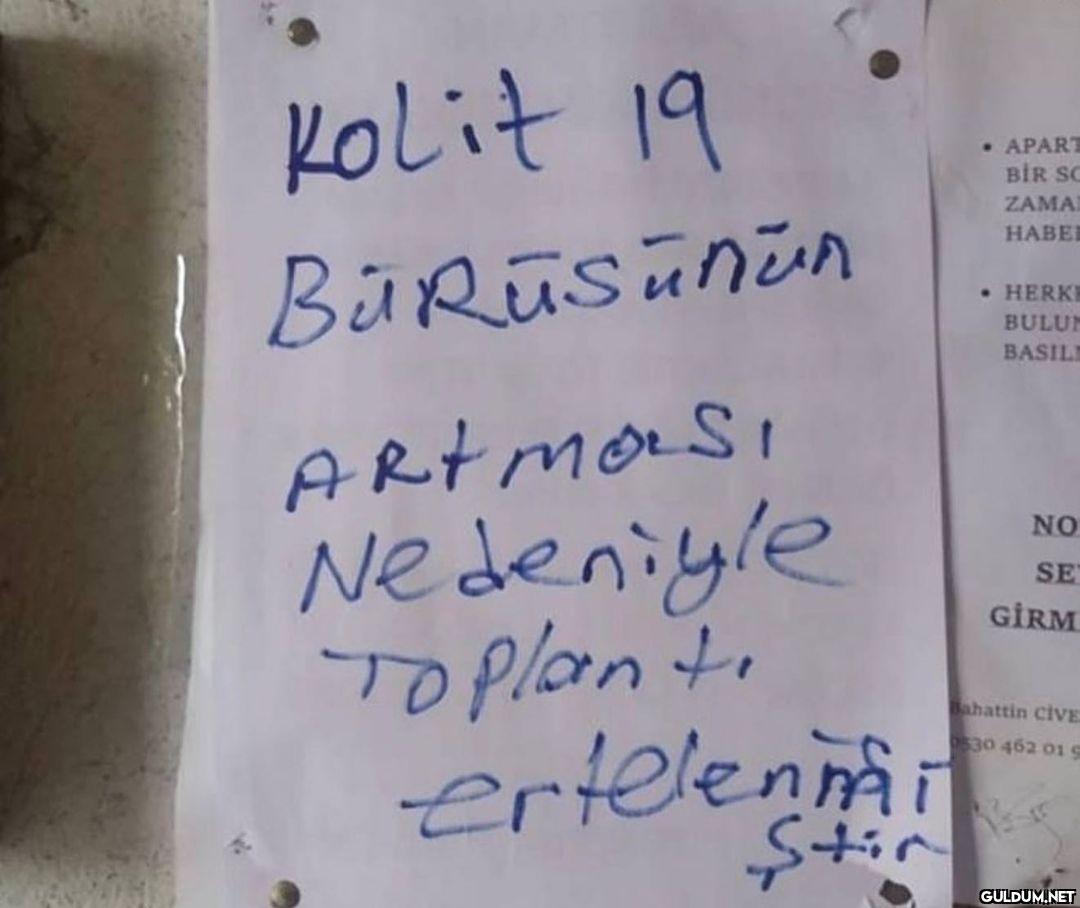 Kolit 19
BÜRÜSÜNÜN
ARtması
Nedeniyle
Toplantı
ertelenmi
ştir
• APART
BİR SO
ZAMA
HABE
• HERK
BULUN
BASIL
NO
SE
GİRM
Bahattin CİVE
0530 462 01 9
GULDUM.NET